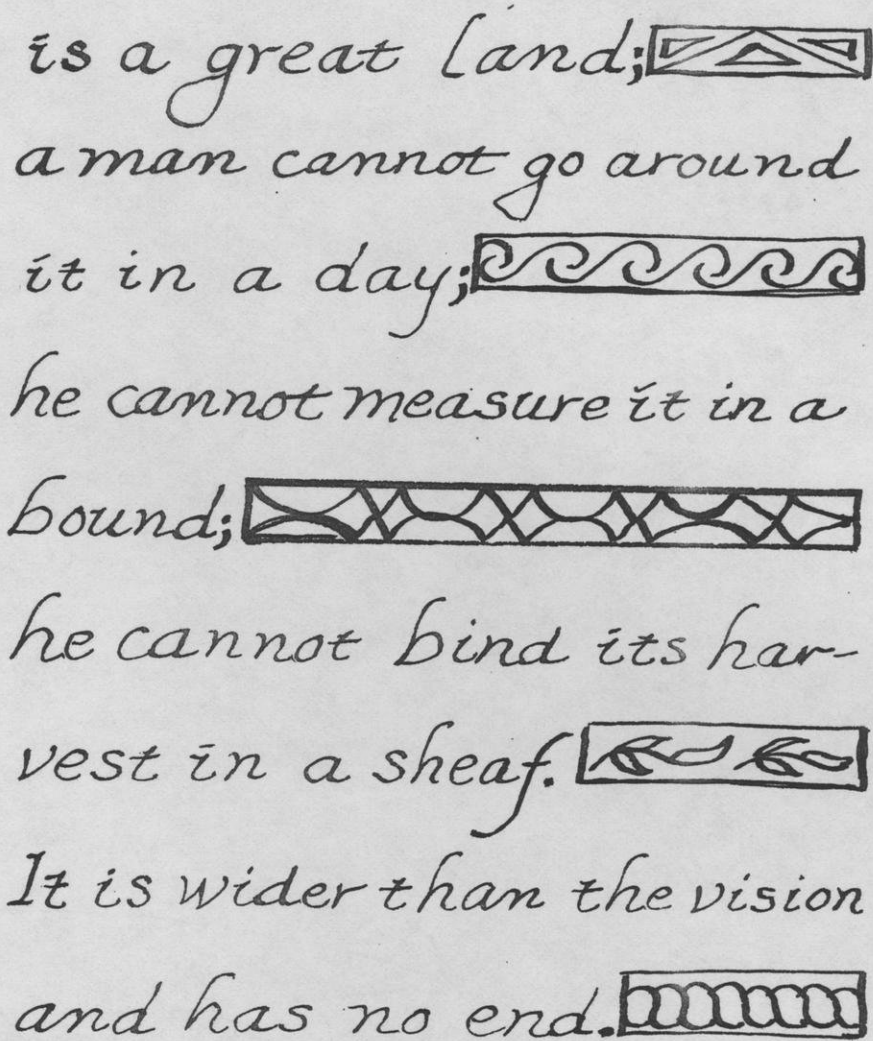 is a great land;
a man cannot go around
it in a day;
he cannot measure it in a
bound;
he cannot bind its har-
vest in a sheaf.
It is wider than the vision
and has no end.